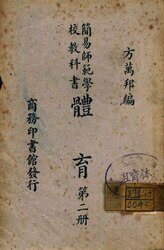 方萬邦編
簡易師範學
校教科書
體育 第二册
商務印書館發行